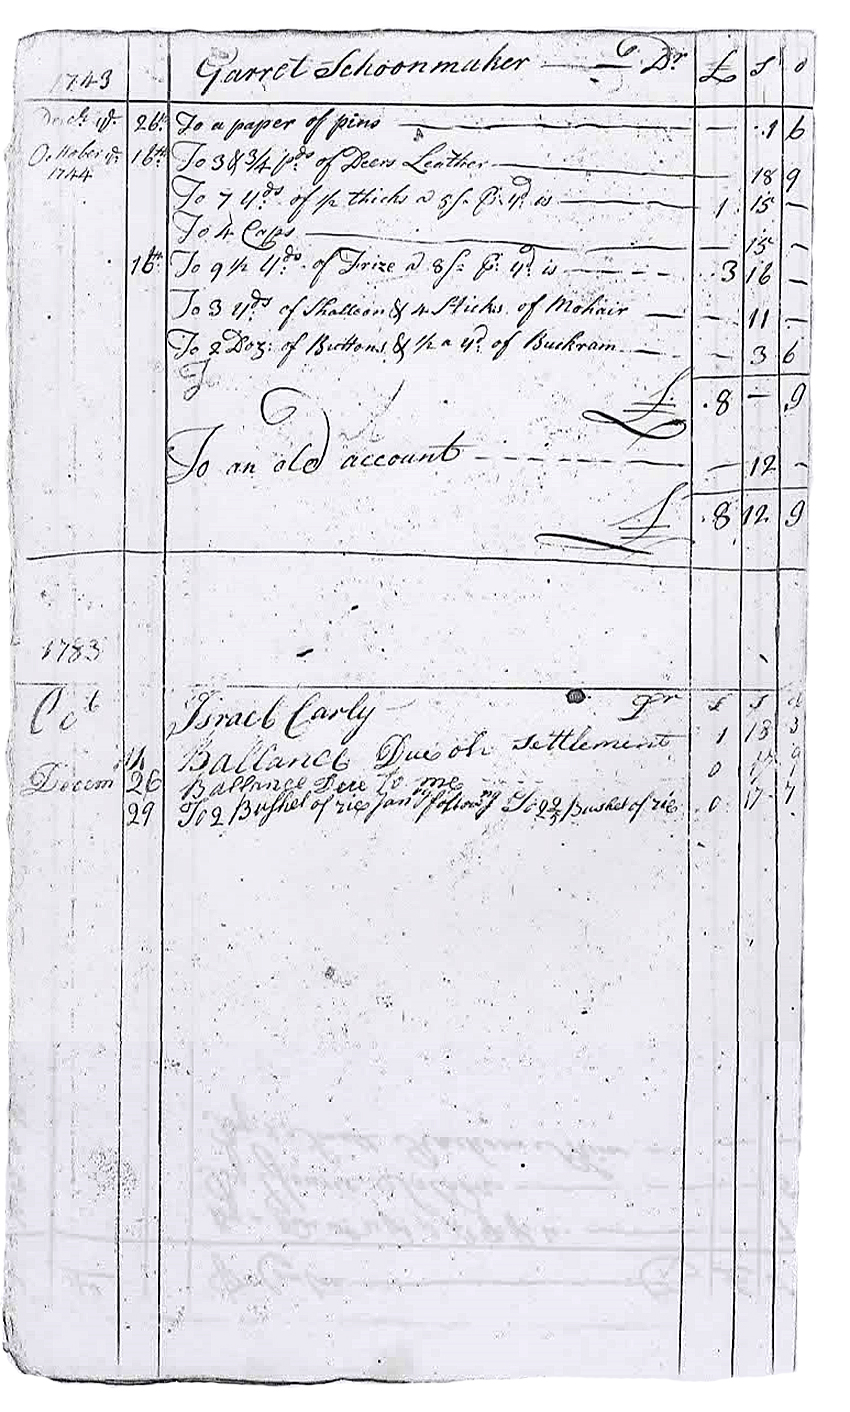 1743 Garret Schoonmaker Dr £ s d
26th To a paper of pins — — .1 6
October ye 16th To 3 & 3/4 pds of Deers Leather — 18 9
1744
To 7 yds of 1/2 thicks a 5/- pr yd is — 1 15 —
To 4 Caps — — 15 —
16th To 9 1/2 yds of Frize a 8/- pr yd is — 3 16 —
To 3 yds of Shalloon & 4 Sticks of Mohair — — 11 —
To 2 Doz: of Buttons & 1/2 a yd of Buckram — — 3 6
To
£ .8 — .9
To an old account — — 12 —
£ .8 12 9
1783
Octb Israel Carly Dr £ s d
Ballance Due on settlement 1 18 3
Decem 26 Ballance Dere to me 0 17 9
29 To 2 Bushel of rie Jan follow To 2 Bushel of rie 0 17 7